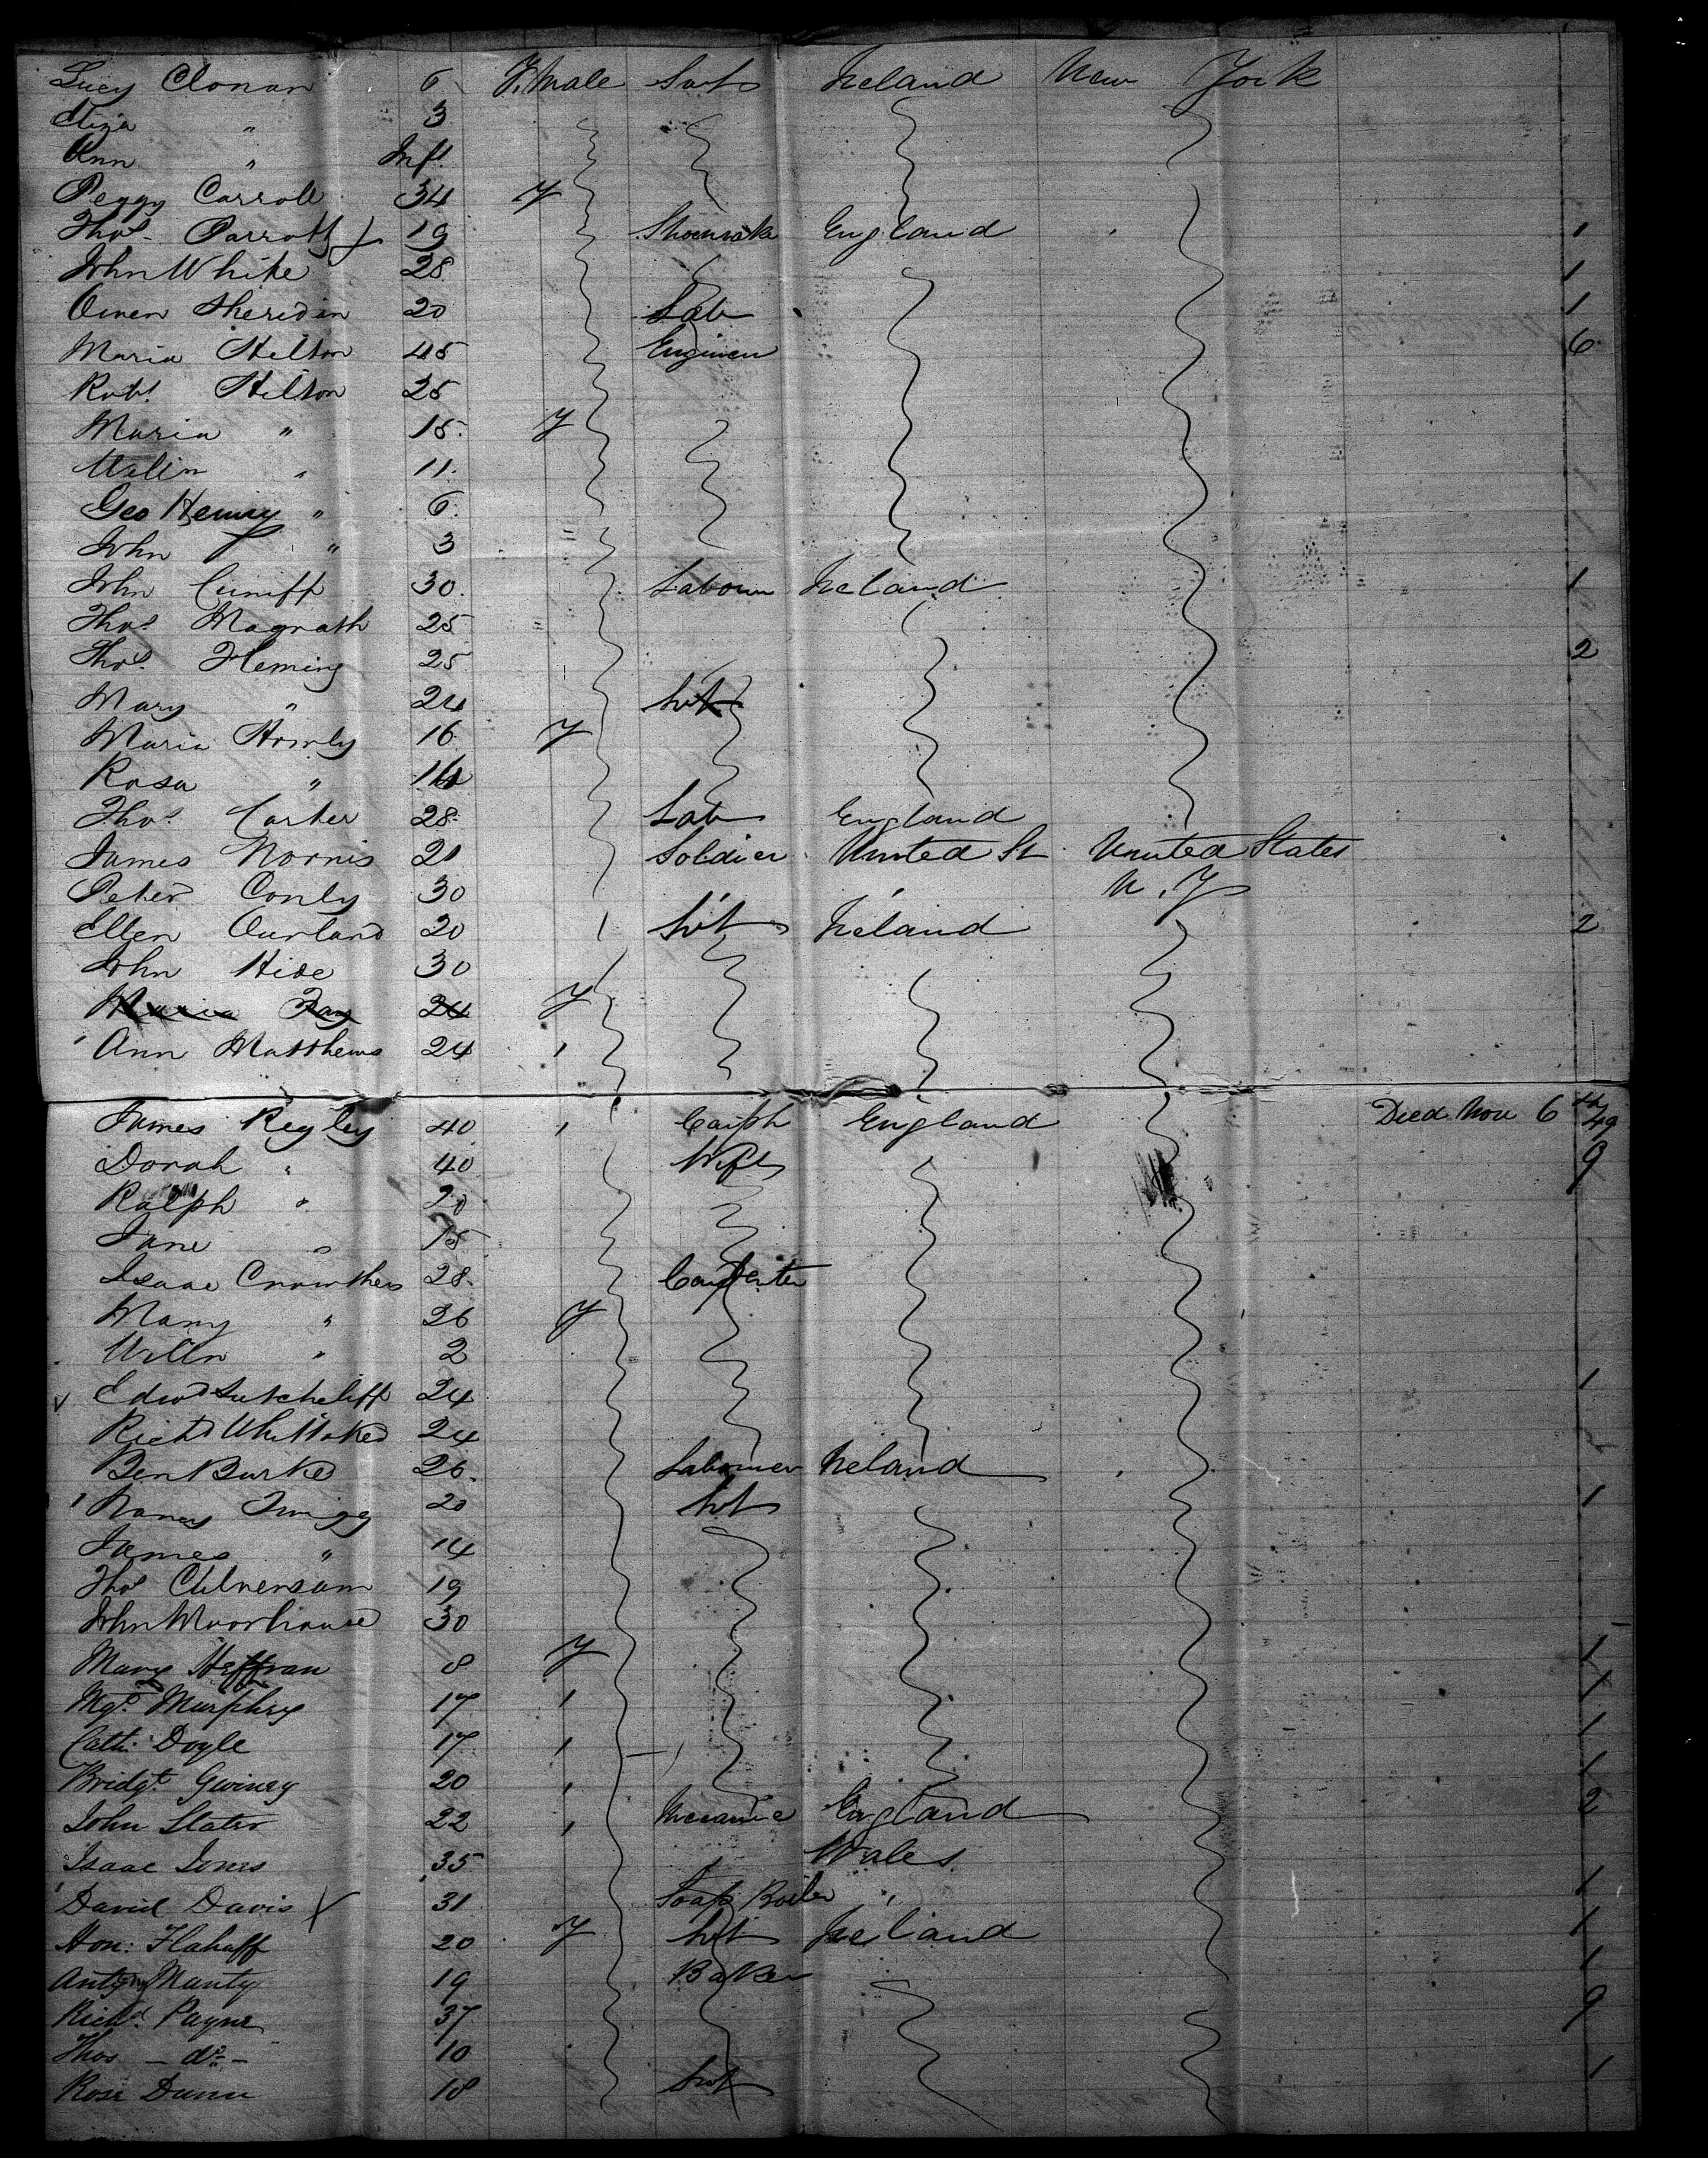 Lucy Clonan 6 F. Male Ireland New York
Eliza " 3
Ann " Inft.
Peggy Carroll 34 F
Thos. Parrott 19 Shoemake England 1
John White 28 1
Owen Sheridan 20 Lab 1
Maria Hilton 45 Engineer 6
Robt. Hilton 25
Maria " 15 F
" 11
Geo Henry " 6
John " 3
John Cuniff 30 Labour Ireland 1
Thos Magrath 25
Thos. Fleming 25 2
Mary " 24
Maria 16 F
Rosa " 14
Thos. Carter 28 Lab England
James Norris 21 Soldier United St United States
Peter Conly 30 N. Y
Ellen 20 Ireland 2
John Hide 30
Maria Fay 24 F
Ann Matthews 24
James Regley 40 England Died Nov 6th 49
Dorah " 40 Wife 9
Ralph " 20
Jane " 15
Isaac Crowthers 28 Carpenter
Mary " 26 F
Willm " 2
Edwd Sutcheliff 24 1
Richd Whittaker 24
Ben Burke 26 Labourer Ireland
Nancy Twigg 20 1
James " 14
Thos 19
John Moorhouse 30
Mary Heffran 8 F 1
Mgt. Murphey 17 1
Cath. Doyle 17 1
Bridgt. Gwiney 20 1
John Slater 22 England 2
Isaac Jones 35 Wales
David Davis 31 Soap Boiler " 1
Hon: Flahaff 20 F Ireland 1
Antony Manty 19 Baker 1
Richd. Payne 37 9
Thos - do - 10
Rose Dunn 18 1